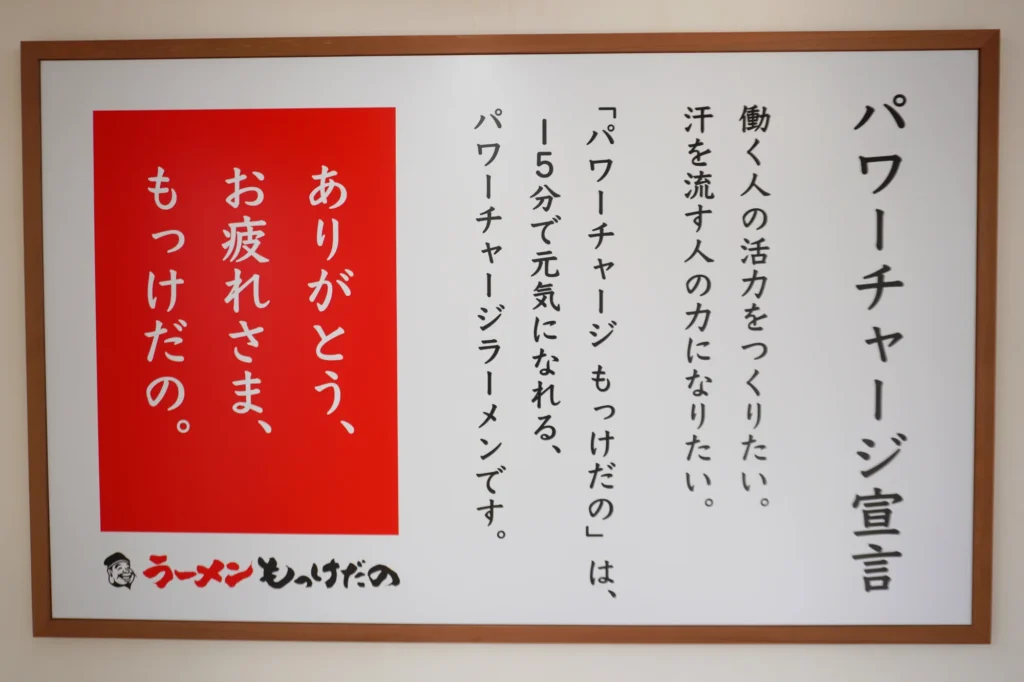 パワーチャージ宣言
働く人の活力をつくりたい。
汗を流す人の力になりたい。
「パワーチャージ もっけだの」は、
15分で元気になれる、
パワーチャージラーメンです。
ありがとう、
お疲れさま、
もっけだの。
ラーメンもっけだの